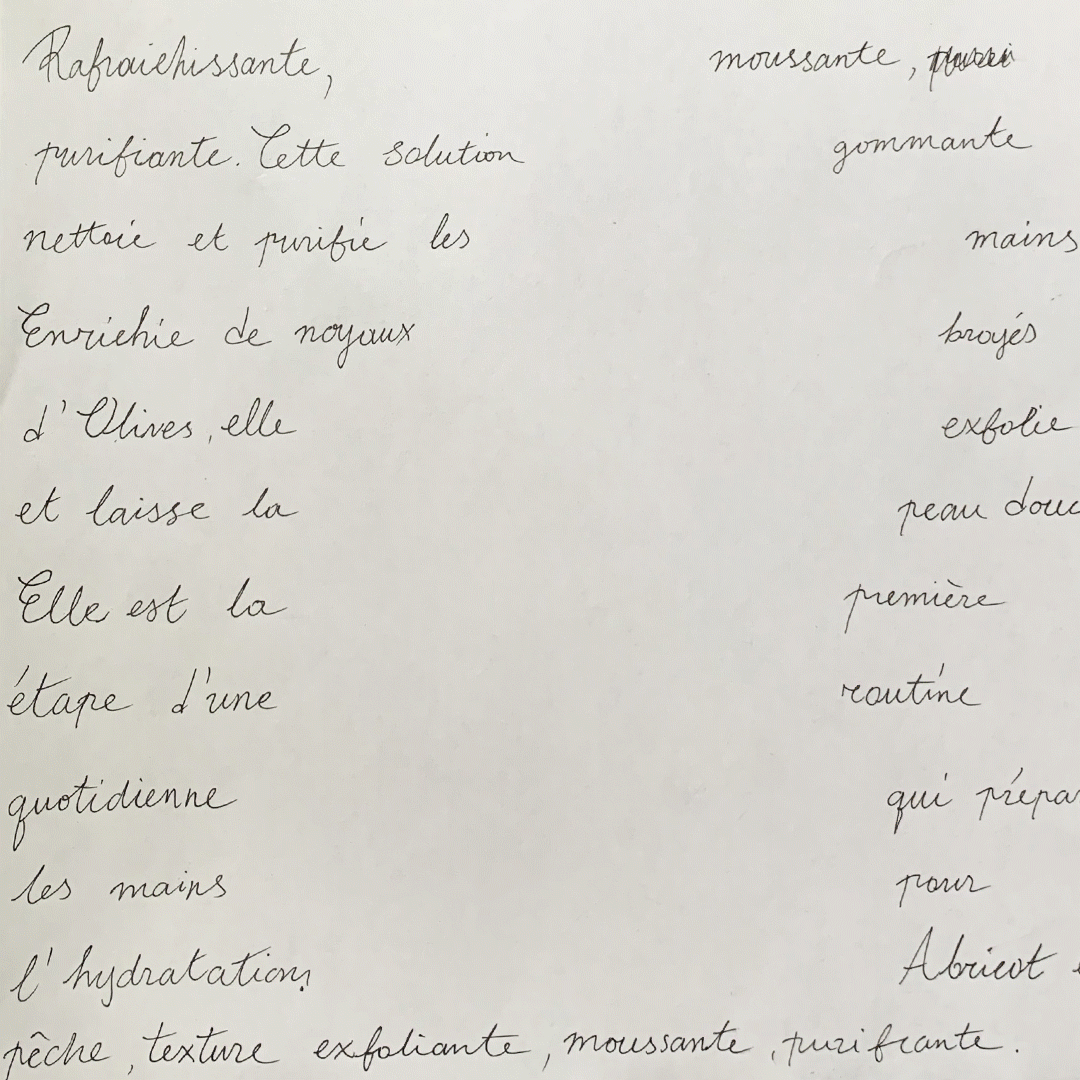 Rafraichissante, moussante,
purifiante. Cette solution gommante
nettoie et purifie les mains
Enrichie de noyaux broyés
d'Olives, elle exfolie
et laisse la peau douc
Elle est la première
étape d'une routine
quotidienne qui prépar
les mains pour
l'hydratation. Abricot e
pêche, texture exfoliante, moussante, purifiante.